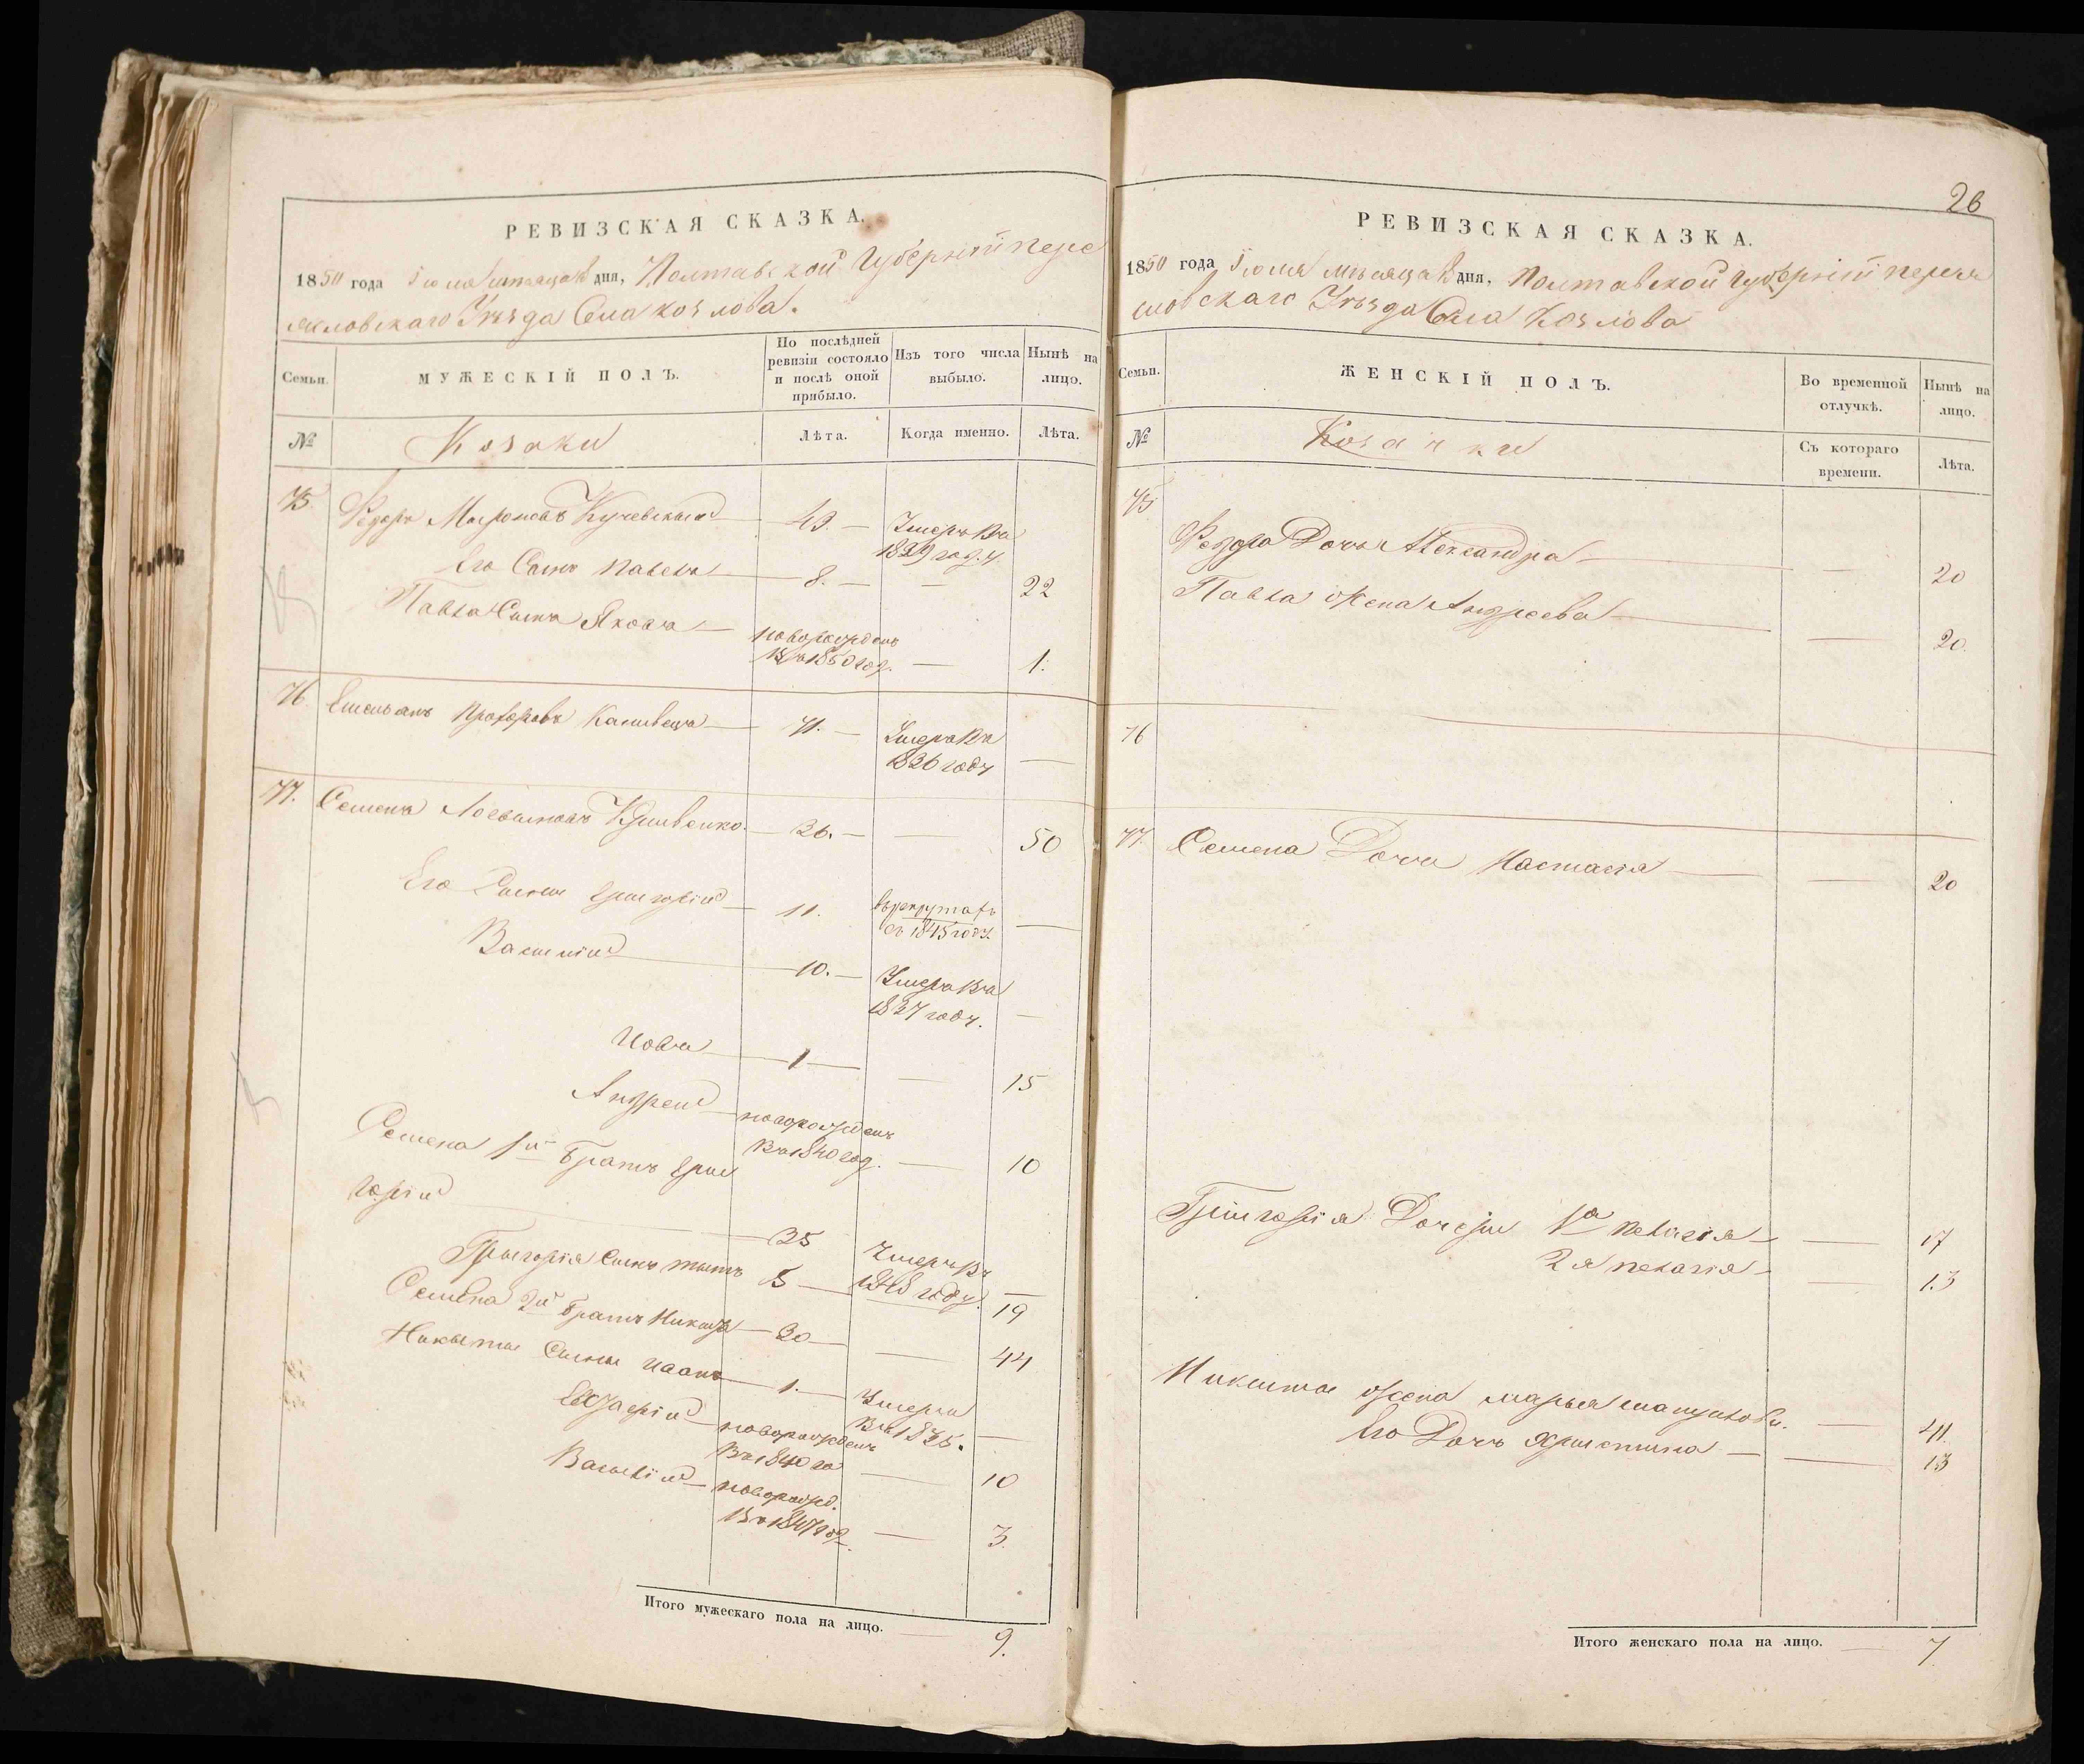 РЕВИЗСКАЯ СКАЗКА.
1850 года Іюля месяца дня, Полтавской Губерніи Перея
яловскаго Уѣзда Села Козлова.
Семьи.
МУЖЕСКІЙ ПОЛЪ.
По послѣдней ревизіи состояло и послѣ оной прибыло.
Изъ того числа выбыло.
Нынѣ на лицо.
№
Козаки
Лѣта.
Когда именно.
Лѣта.
75. Федоръ Мироновъ 49. Умеръ въ
1829 году
Его Сынъ Павелъ 8. 22
Павла Сынъ Яковъ новорожденъ
въ 1850 год. 1.
76. Емельянъ Прохоровъ 71. Умеръ въ
1836 году
77. Семенъ Кривенко 36. 50
Его Сыны Григорій 11. въ рекрутахъ
съ 1845 году
Василий 10. Умеръ въ
1837 году.
Иовъ 1 15
Андрей новорожденъ
въ 1840 год. 10
Семена 1й Братъ Гри
горій 35 Умеръ въ
1848 году.
Григорія Сынъ Титъ 5 19
Семена 2й Братъ Никита 30 44
Никиты Сыны Иванъ 1. Умеръ
въ 1835.
новорожденъ
въ 1840 го 10
Василій новорожд.
въ 1847 год. 3.
Итого мужескаго пола на лицо. 9.
26
РЕВИЗСКАЯ СКАЗКА.
1850 года Іюля месяца дня, Полтавской Губерніи Переяя
словскаго Уѣзда Села Козлова
Семьи.
ЖЕНСКІЙ ПОЛЪ.
Во временной отлучкѣ.
Нынѣ на лицо.
№
Козачки
Съ котораго времени.
Лѣта.
75
Федора Дочь Александра 20
Павла Жена Андреева 20.
76
77. Семена Дочь Настасія 20
Григорія Дочери 1я Пелагія 17
2я Пелагія 13
Никиты Жена Марья 41.
Его Дочь Христина 13
Итого женскаго пола на лицо. 7